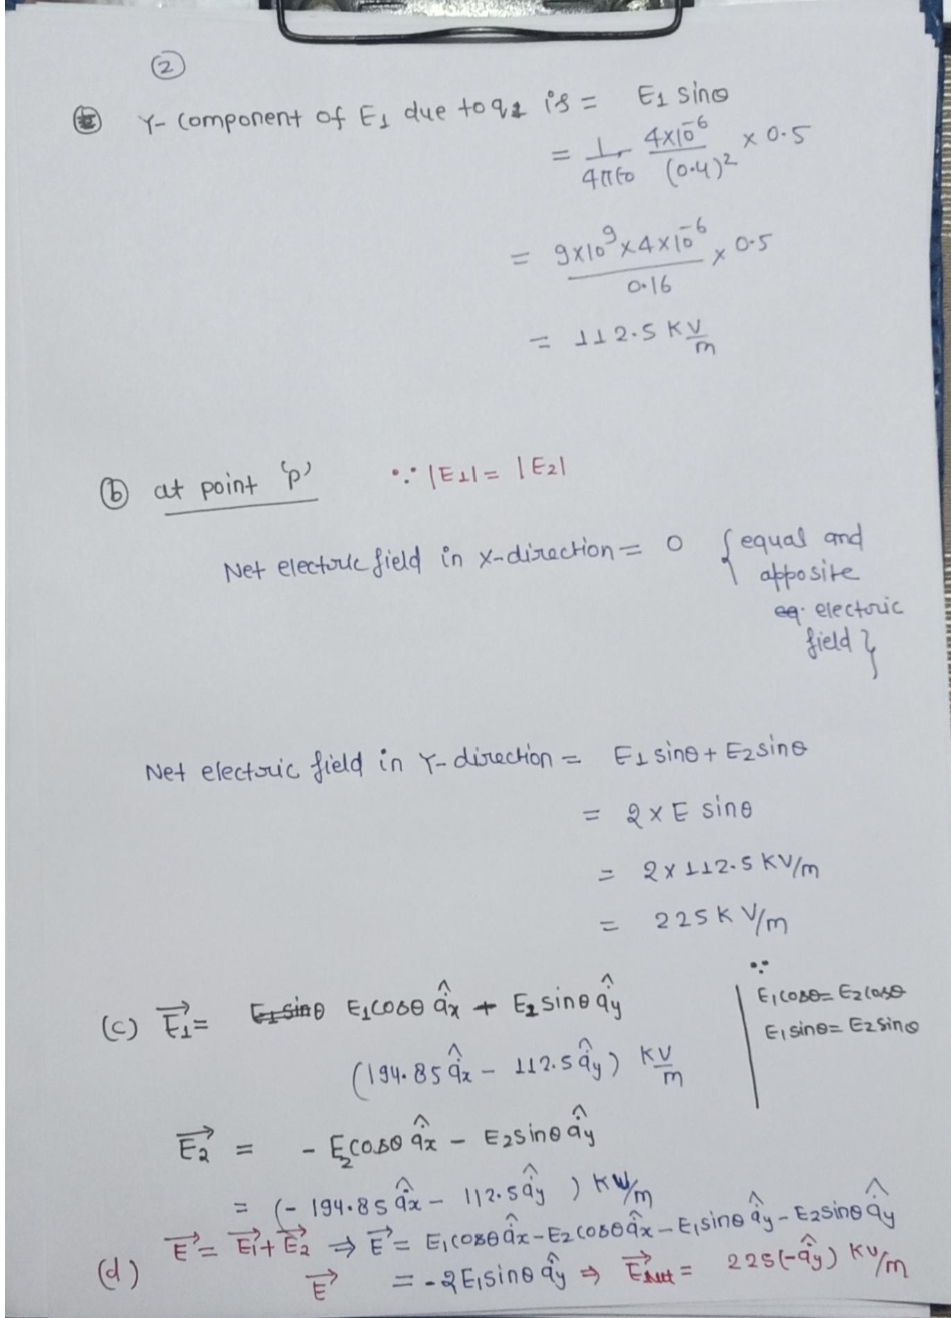 ②
Y- Component of E1 due to q1 is = E1 sinθ
= 1/4πϵ0 4×10^-6/(0.4)^2 × 0.5
= 9×10^9×4×10^-6/0.16 × 0.5
= 112.5 KV/m
ⓑ at point 'p' ∵ |E1| = |E2|
Net electric field in X-direction = 0 {equal and
apposite
eq. electric
field}
Net electric field in Y-direction = E1 sinθ + E2 sinθ
= 2×E sinθ
= 2×112.5 KV/m
= 225 K V/m
∵
(c) E⃗1 = E1 sinθ E1 cosθ âx + E1 sinθ ây
E1 cosθ = E2 cosθ
E1 sinθ = E2 sinθ
(194.85 âx - 112.5 ây) KV/m
E⃗2 = - E2 cosθ âx - E2 sinθ ây
= (- 194.85 âx - 112.5 ây) KV/m
(d) E⃗ = E⃗1 + E⃗2 ⇒ E⃗ = E1 cosθ âx - E2 cosθ âx - E1 sinθ ây - E2 sinθ ây
E⃗ = -2E1 sinθ ây ⇒ E⃗net = 225(-ây) KV/m